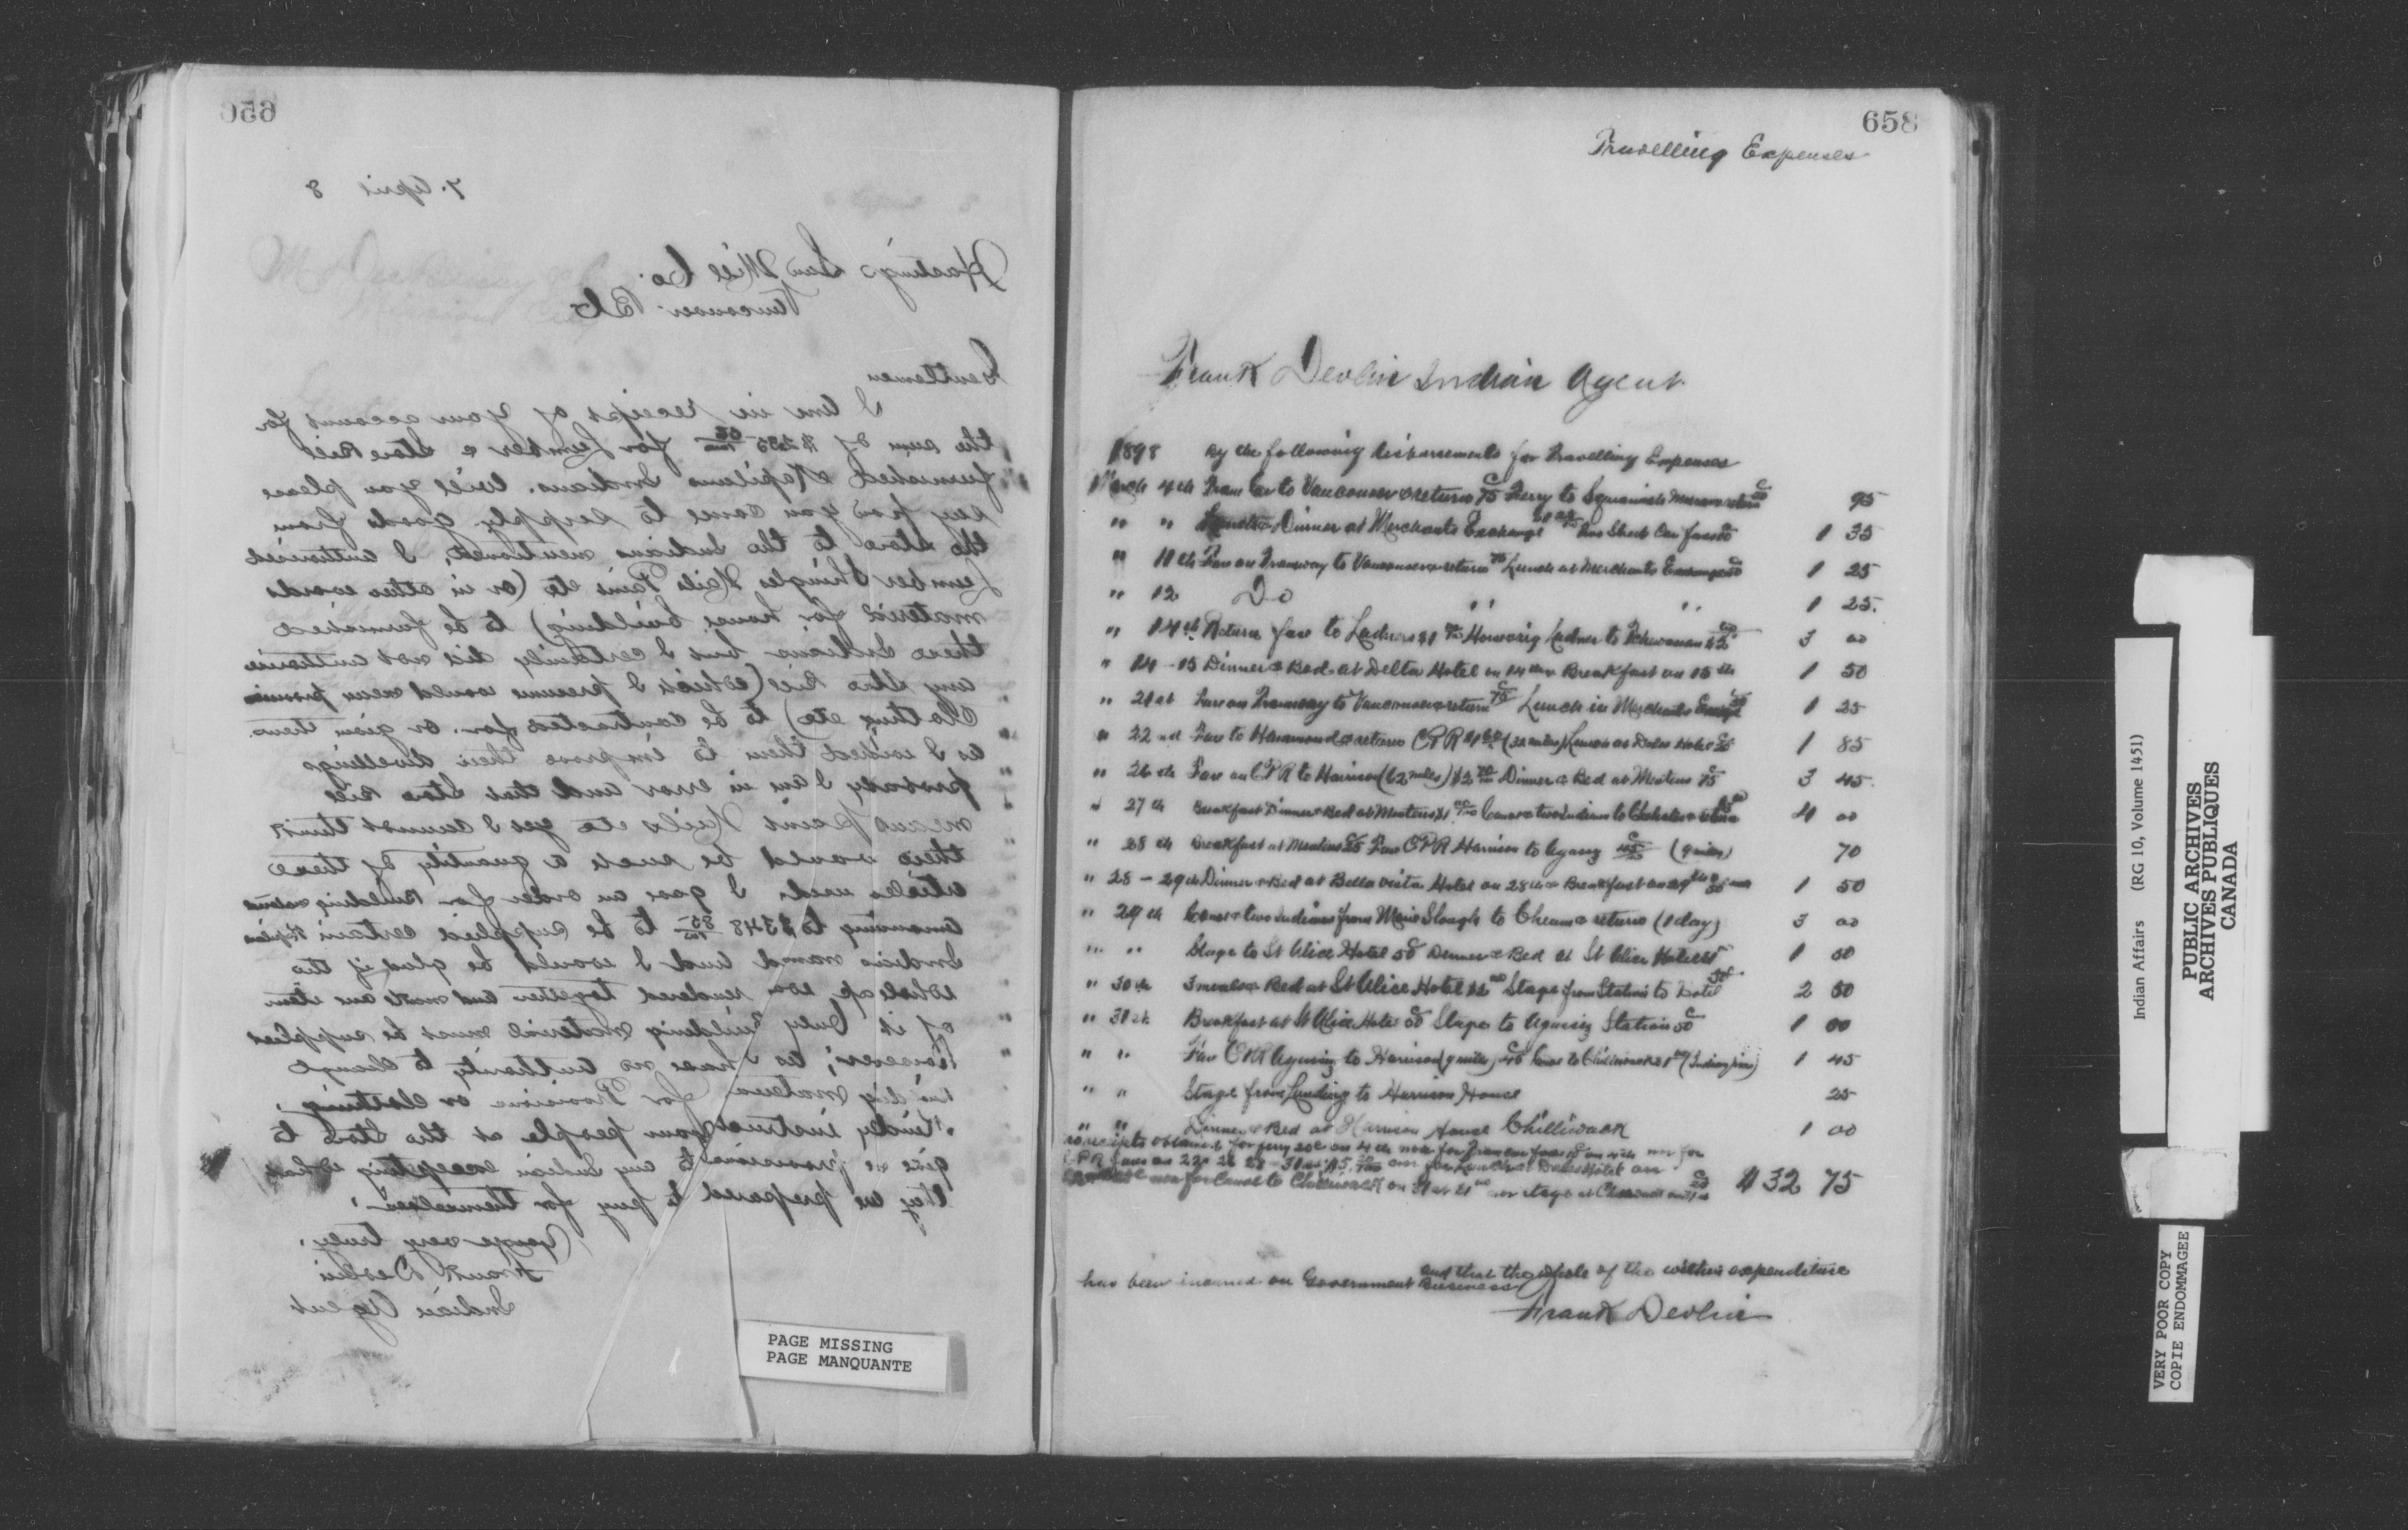 656
7. April 8
Hastings Saw Mill Co.
Vancouver BC
Gentlemen
I am in receipt of your account for
the sum of $235 for Lumber & Store Bill
furnished Kapilano Indians. Will you please
say how you came to supply goods from
the store to the Indians mentioned, I authorised
Lumber Shingles Nails Paint etc (or in other words
material for house building) to be furnished
these Indians but I certainly did not authorise
any Store Bill (which I presume would mean provisions
Clothing etc) to be contracted for. or given them.
as I wished them to improve their dwellings
probably I am in error and that Store Bill
means paint Nails etc yet I cannot think
there would be such a quantity of these
articles used. I gave an order for Building material
amounting to $348 to be supplied certain
Indians named and I would be glad if the
whole was rendered together and make one item
of it Only Building Material must be supplied
however, as I have no authority to change
building material for Provisions or clothing.
Kindly instruct your people at the Store to
give no provisions to any Indian excepting what
they are prepared to pay for themselves.
Yours very truly.
Frank Devlin
Indian Agent
PAGE MISSING
PAGE MANQUANTE
658
Travelling Expenses
Frank Devlin Indian Agent
1898 By the following disbursements for Travelling Expenses
March 4th Tram Car to Vancouver & return 75c Ferry to Squamish Mission & return 95
" " Dinner at Merchants Exchange Street Car fare 1 35
" 11th Fare on Tramway to Vancouver & return 75 Lunch at Merchants Exchange 50 1 25
" 12 Do " " 1 25.
" 14th Return fare to Ladners $1 Horse rig Ladner to $2 3 00
" 14-15 Dinner & Bed at Delta Hotel on 14th & Breakfast on 15th 1 50
" 21st Fare on Tramway to Vancouver & return 75c Lunch in Merchants 50 1 25
" 22nd Fare to Hammond & return CPR $1 (32 miles) Lunch at Hotel 1 85
" 26th Fare on CPR to Harrison (62 miles) $2 Dinner & Bed at Mentens 75c 3 45.
" 27th Breakfast Dinner & Bed at Mentens $1 Canoe & two Indians to Chehalis & return 4 00
" 28th Breakfast at Mentens 25 Fare CPR Harrison to Agassiz 45 (9 miles) 70
" 28-29th Dinner & Bed at Bella vista Hotel on 28th & Breakfast on 29th 1 50
" 29th Canoe & two Indians from Maria Slough to Cheam & return (1 day) 3 00
" " Stage to St Alice Hotel 50c Dinner & Bed at St Alice Hotel 1 50
" 30th 3 meals & Bed at St Alice Hotel $2.00 Stage from Station to Hotel 50c 2 50
" 31st Breakfast at St Alice Hotel 50 Stage to Agassiz Station 50c 1 00
" " Fare CPR Agassiz to Harrison (9 miles) 45c Canoe to Chilliwack $1.00 1 45
" " Stage from Landing to Harrison House 25
" " Dinner & Bed at Harrison House Chilliwack 1 00
no receipts obtained for ferry 20c on 4th nor for Tram car fare on nor for
CPR fares on 22. 26 28 - 31st $5. nor for Lunch at Hotel on
nor for Canoe to Chilliwack on 31st $1.00 nor stage at Chilliwack $32 75
and that the whole of the within expenditure
has been incurred on Government Business
Frank Devlin
Indian Affairs (RG 10, Volume 1451)
PUBLIC ARCHIVES
ARCHIVES PUBLIQUES
CANADA
VERY POOR COPY
COPIE ENDOMMAGEE